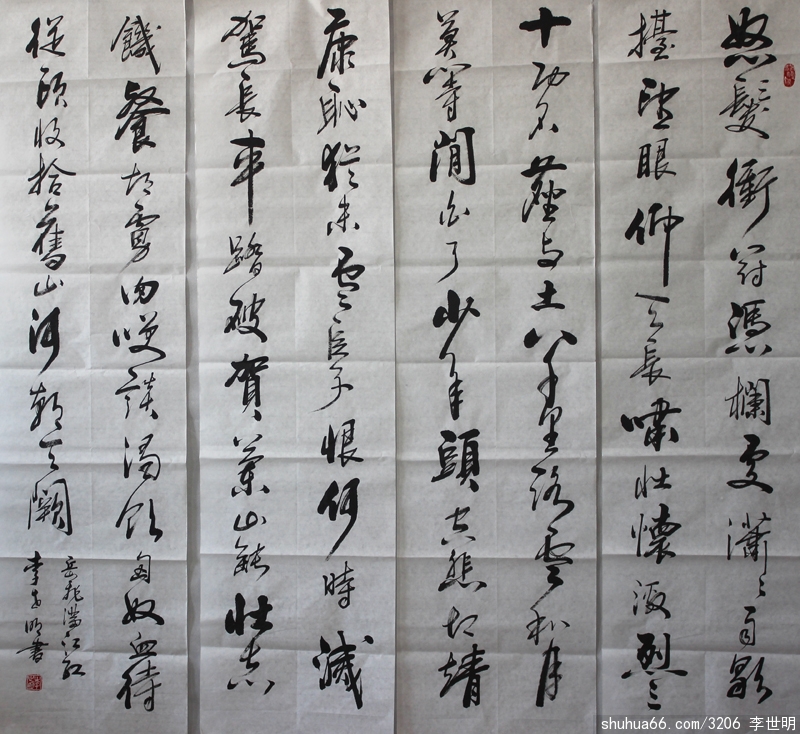 怒髮衝冠憑欄處瀟〻雨歇
擡望眼仰天長嘯壯懷激烈三
十功名塵与土八千里路雲和月
莫等閒白了少年頭空悲切靖
康恥猶未雪臣子恨何時滅
駕長車踏破賀蘭山缺壯志
饑餐胡虜肉咲談渴飲匈奴血待
從頭收拾舊山河朝天闕
岳飛滿江紅
李世明書
shuhua66.com/3206 李世明